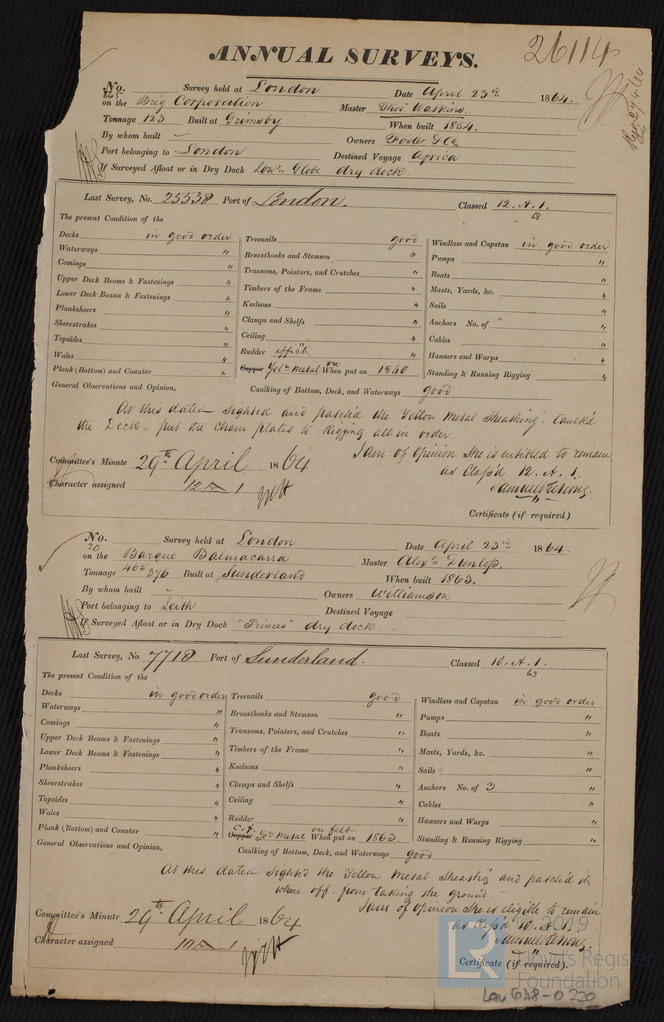 ANNUAL SURVEYS.
26114
No. Survey held at London Date April 23rd 1864.
on the Brig Corporation Master Thos Watkins
Tonnage 123 Built at Grimsby When built 1854.
By whom built - Owners Foster & Co
Port belonging to London Destined Voyage Africa
If Surveyed Afloat or in Dry Dock Lowr. Globe dry dock.
Last Survey, No. 25538 Port of London. Classed 12. A. 1.
The present Condition of the
Decks in good order
Waterways "
Comings "
Upper Deck Beams & Fastenings "
Lower Deck Beams & Fastenings "
Planksheers "
Sheerstrakes "
Topsides "
Wales "
Plank (Bottom) and Counter "
General Observations and Opinion,
Treenails good
Breasthooks and Stemson "
Transoms, Pointers, and Crutches "
Timbers of the Frame "
Keelsons "
Clamps and Shelfs "
Ceiling "
Rudder effict
Copper Yelw Metal on When put on 1860
Caulking of Bottom, Deck, and Waterways good
Windlass and Capstan in good order
Pumps "
Boats "
Masts, Yards, &c. "
Sails "
Anchors No. of "
Cables "
Hawsers and Warps "
Standing & Running Rigging "
At this dated Sighted and patch'd the Yellow Metal Sheathing. Caulk'd
the Deck. put the chain plates & Rigging all in order.
I am of opinion She is entitled to remain
as Class'd 12. A. 1.
Committee's Minute 29th April 1864
Character assigned 12 A 1
Certificate (if required)
No. Survey held at London Date April 23rd 1864.
20
on the Barque Balmacarra Master Alexr Dunlop.
Tonnage 376 Built at Sunderland When built 1863.
By whom built - Owners Williamson
Port belonging to Leith Destined Voyage
If Surveyed Afloat or in Dry Dock "Princes" dry dock.
Last Survey, No. 7718 Port of Sunderland. Classed 10. A. 1.
63
The present Condition of the
Decks in good order
Waterways "
Comings "
Upper Deck Beams & Fastenings "
Lower Deck Beams & Fastenings "
Planksheers "
Sheerstrakes "
Topsides "
Wales "
Plank (Bottom) and Counter "
General Observations and Opinion,
Treenails good
Breasthooks and Stemson "
Transoms, Pointers, and Crutches "
Timbers of the Frame "
Keelsons "
Clamps and Shelfs "
Ceiling "
Rudder "
Copper Yw Metal on felt When put on 1863
Caulking of Bottom, Deck, and Waterways good
Windlass and Capstan in good order
Pumps "
Boats "
Masts, Yards, &c. "
Sails "
Anchors No. of 3
Cables "
Hawsers and Warps "
Standing & Running Rigging "
At this dated Sighted the Yellow Metal Sheathg and patch'd it
where off from taking the ground -
I am of opinion She is eligible to remain
as Class'd 10. A. 1.
Committee's Minute 29th April 1864
Character assigned 10 A 1
Certificate (if required).
LR
2019
Lloyd's Register
Foundation
Lon 648-0220